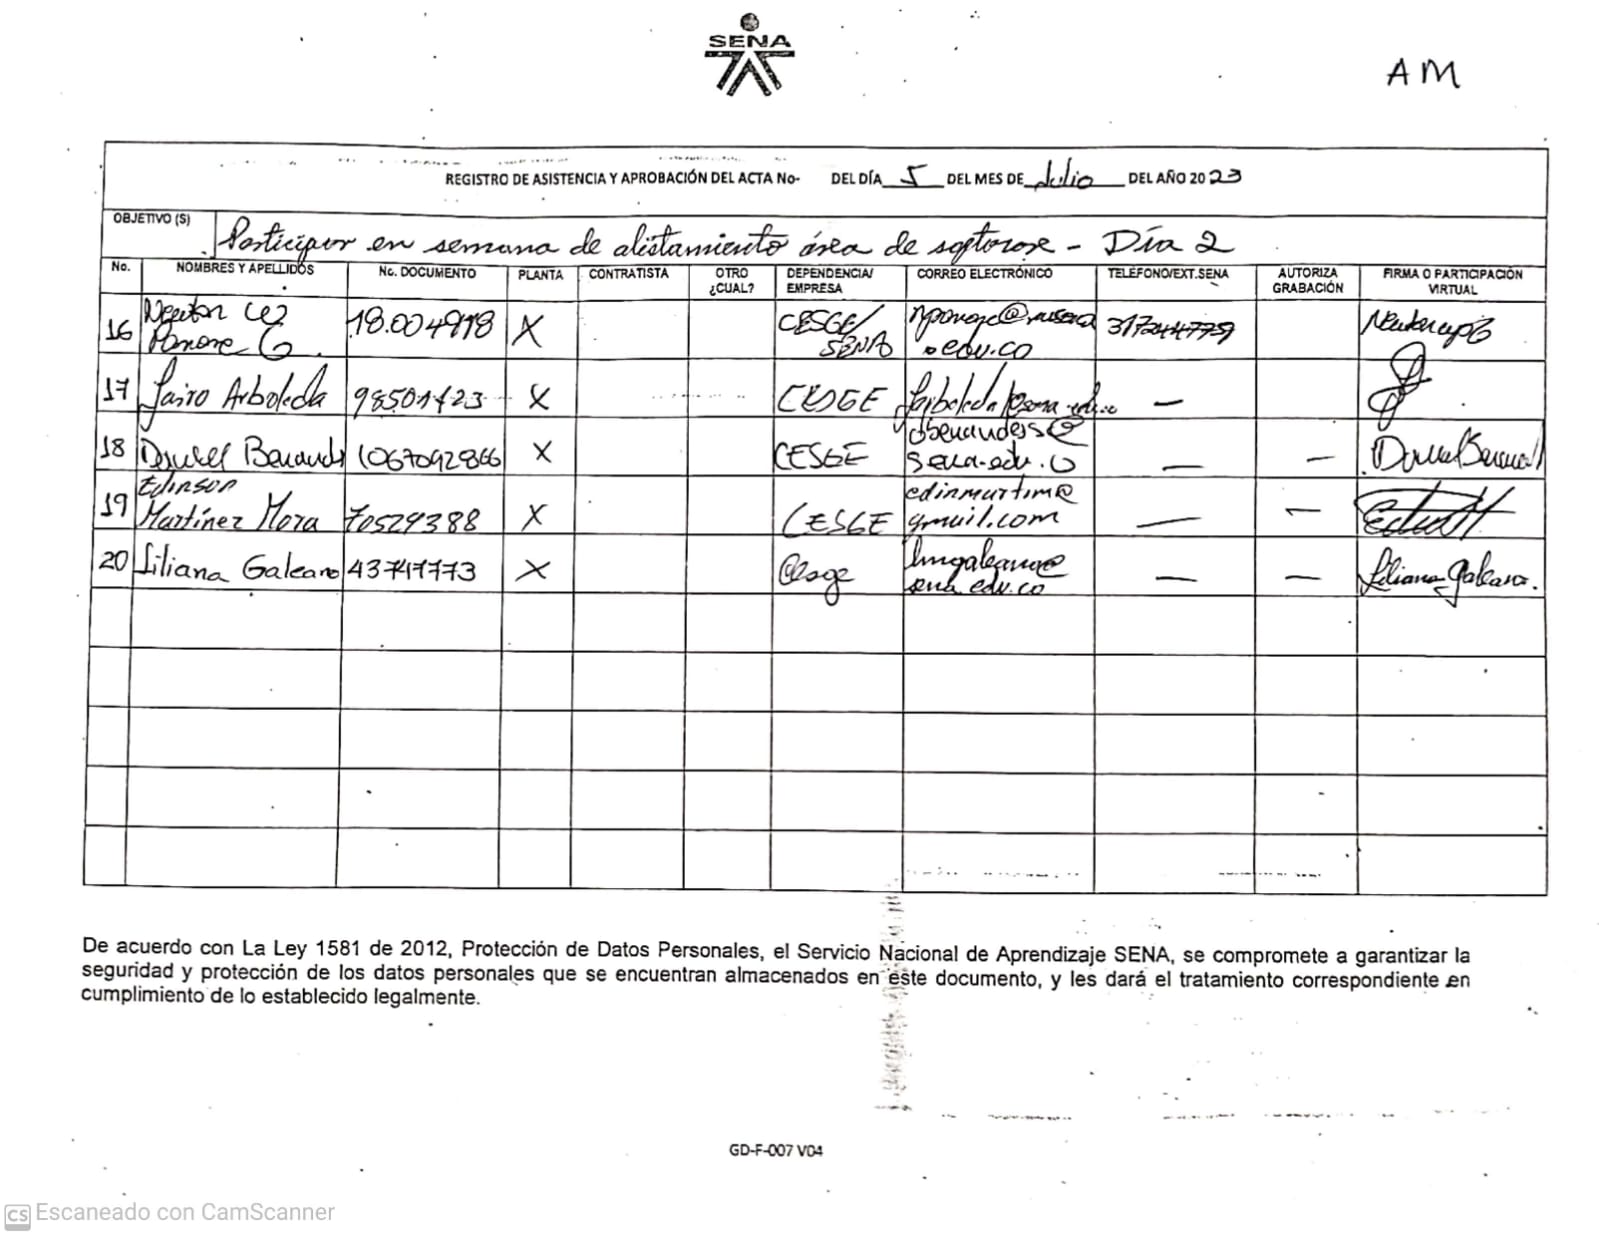 SENA
AM
REGISTRO DE ASISTENCIA Y APROBACIÓN DEL ACTA No- DEL DÍA 5 DEL MES DE Julio DEL AÑO 2023
OBJETIVO (S)
Participar en semana de alistamiento área de - Día 2
No. NOMBRES Y APELLIDOS No. DOCUMENTO PLANTA CONTRATISTA OTRO ¿CUAL? DEPENDENCIA/ EMPRESA CORREO ELECTRÓNICO TELÉFONO/EXT.SENA AUTORIZA GRABACIÓN FIRMA O PARTICIPACIÓN VIRTUAL
16 Newton 18.004918 X CESGE/ SENA .edu.co
17 Jairo Arboleda 98501423 X CESGE —
18 Benavid 1067092866 X CESGE obenavidess@ sena.edu.co — —
19 Edinson Martínez Mora 70529388 X CESGE edinmartim@ gmail.com — —
20 Liliana Galeano 43747773 X Cesge lmgaleano@ sena.edu.co — — Liliana Galeano.
De acuerdo con La Ley 1581 de 2012, Protección de Datos Personales, el Servicio Nacional de Aprendizaje SENA, se compromete a garantizar la
seguridad y protección de los datos personales que se encuentran almacenados en este documento, y les dará el tratamiento correspondiente en
cumplimiento de lo establecido legalmente.
GD-F-007 V04
CS Escaneado con CamScanner